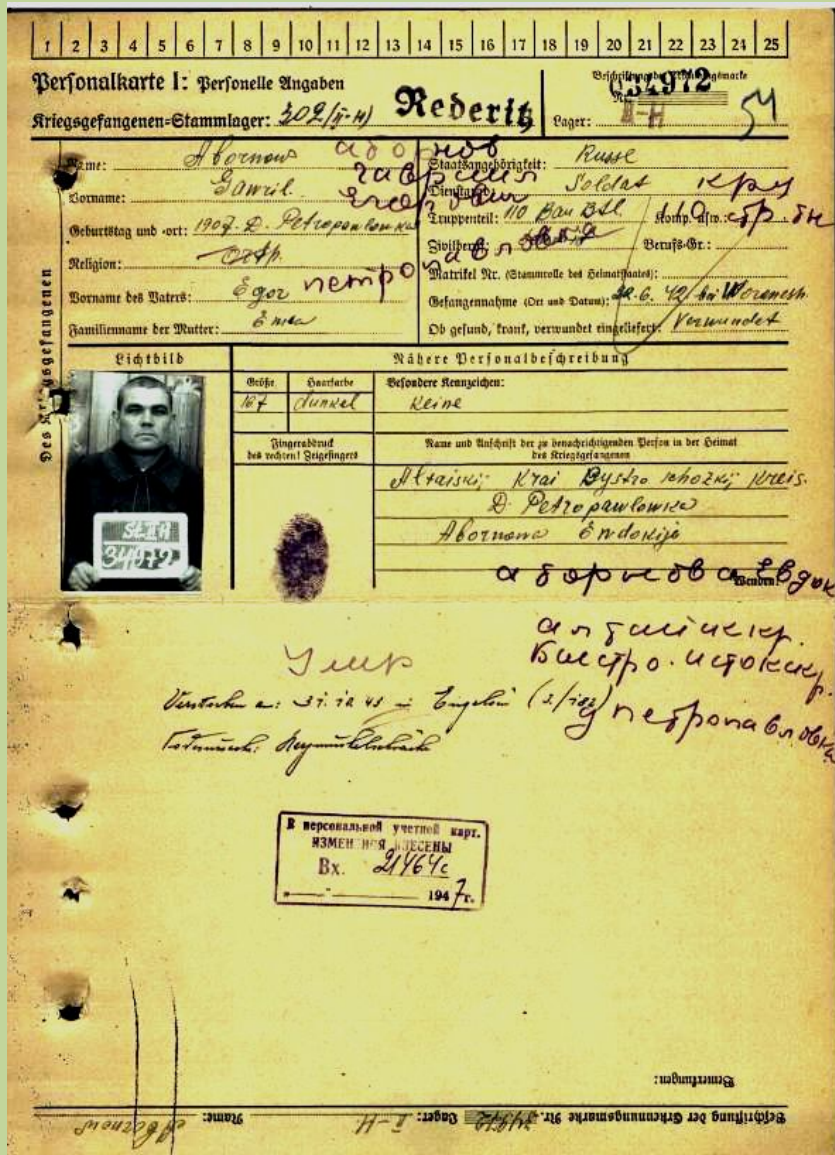 1 2 3 4 5 6 7 8 9 10 11 12 13 14 15 16 17 18 19 20 21 22 23 24 25
Personalkarte I: Personelle Angaben
Kriegsgefangenen-Stammlager: 302 (II-H) Rederitz
Beschriftung der Erkennungsmarke
Nr. 034972
Lager: II-H
51
Name: Abornow аборнов
Vorname: Gawril гаврил
егорович
Geburtstag und -ort: 1907. D. Petropawlowka
петропавловка
Religion: Orth.
Vorname des Vaters: Egor
Familienname der Mutter:
Staatsangehörigkeit: Russe
Dienstgrad: Soldat кр
Truppenteil: 110 Bau Btl. Komp. usw.: 110 стр. бн
Zivilberuf: Berufs-Gr.:
Matrikel Nr. (Stammrolle des Heimatstaates):
Gefangennahme (Ort und Datum): .6.42 bei Woronesh
Ob gesund, krank, verwundet eingeliefert: Verwundet
Des Kriegsgefangenen
Lichtbild
Nähere Personalbeschreibung
Größe Haarfarbe Besondere Kennzeichen:
167 dunkel Keine
Fingerabdruck
des rechten! Zeigefingers
Name und Anschrift der zu benachrichtigenden Person in der Heimat
des Kriegsgefangenen
Altaiskij Krai Bystro Kreis.
D Petropawlowka
Abornowa Ewdokija
St II H
34972
аборнова Евдок
Wenden!
алтайсккр.
Быстро.истокскр.
петропавловка
Умр
Verstorben a: 31.10.43 in
В персональной учетной карт.
ИЗМЕНЕНИЯ ВНЕСЕНЫ
Вх. 21464с
1947 г.
Bemerkungen:
Beschriftung der Erkennungsmarke Nr. 34972 Lager: II-H Name: Abornow